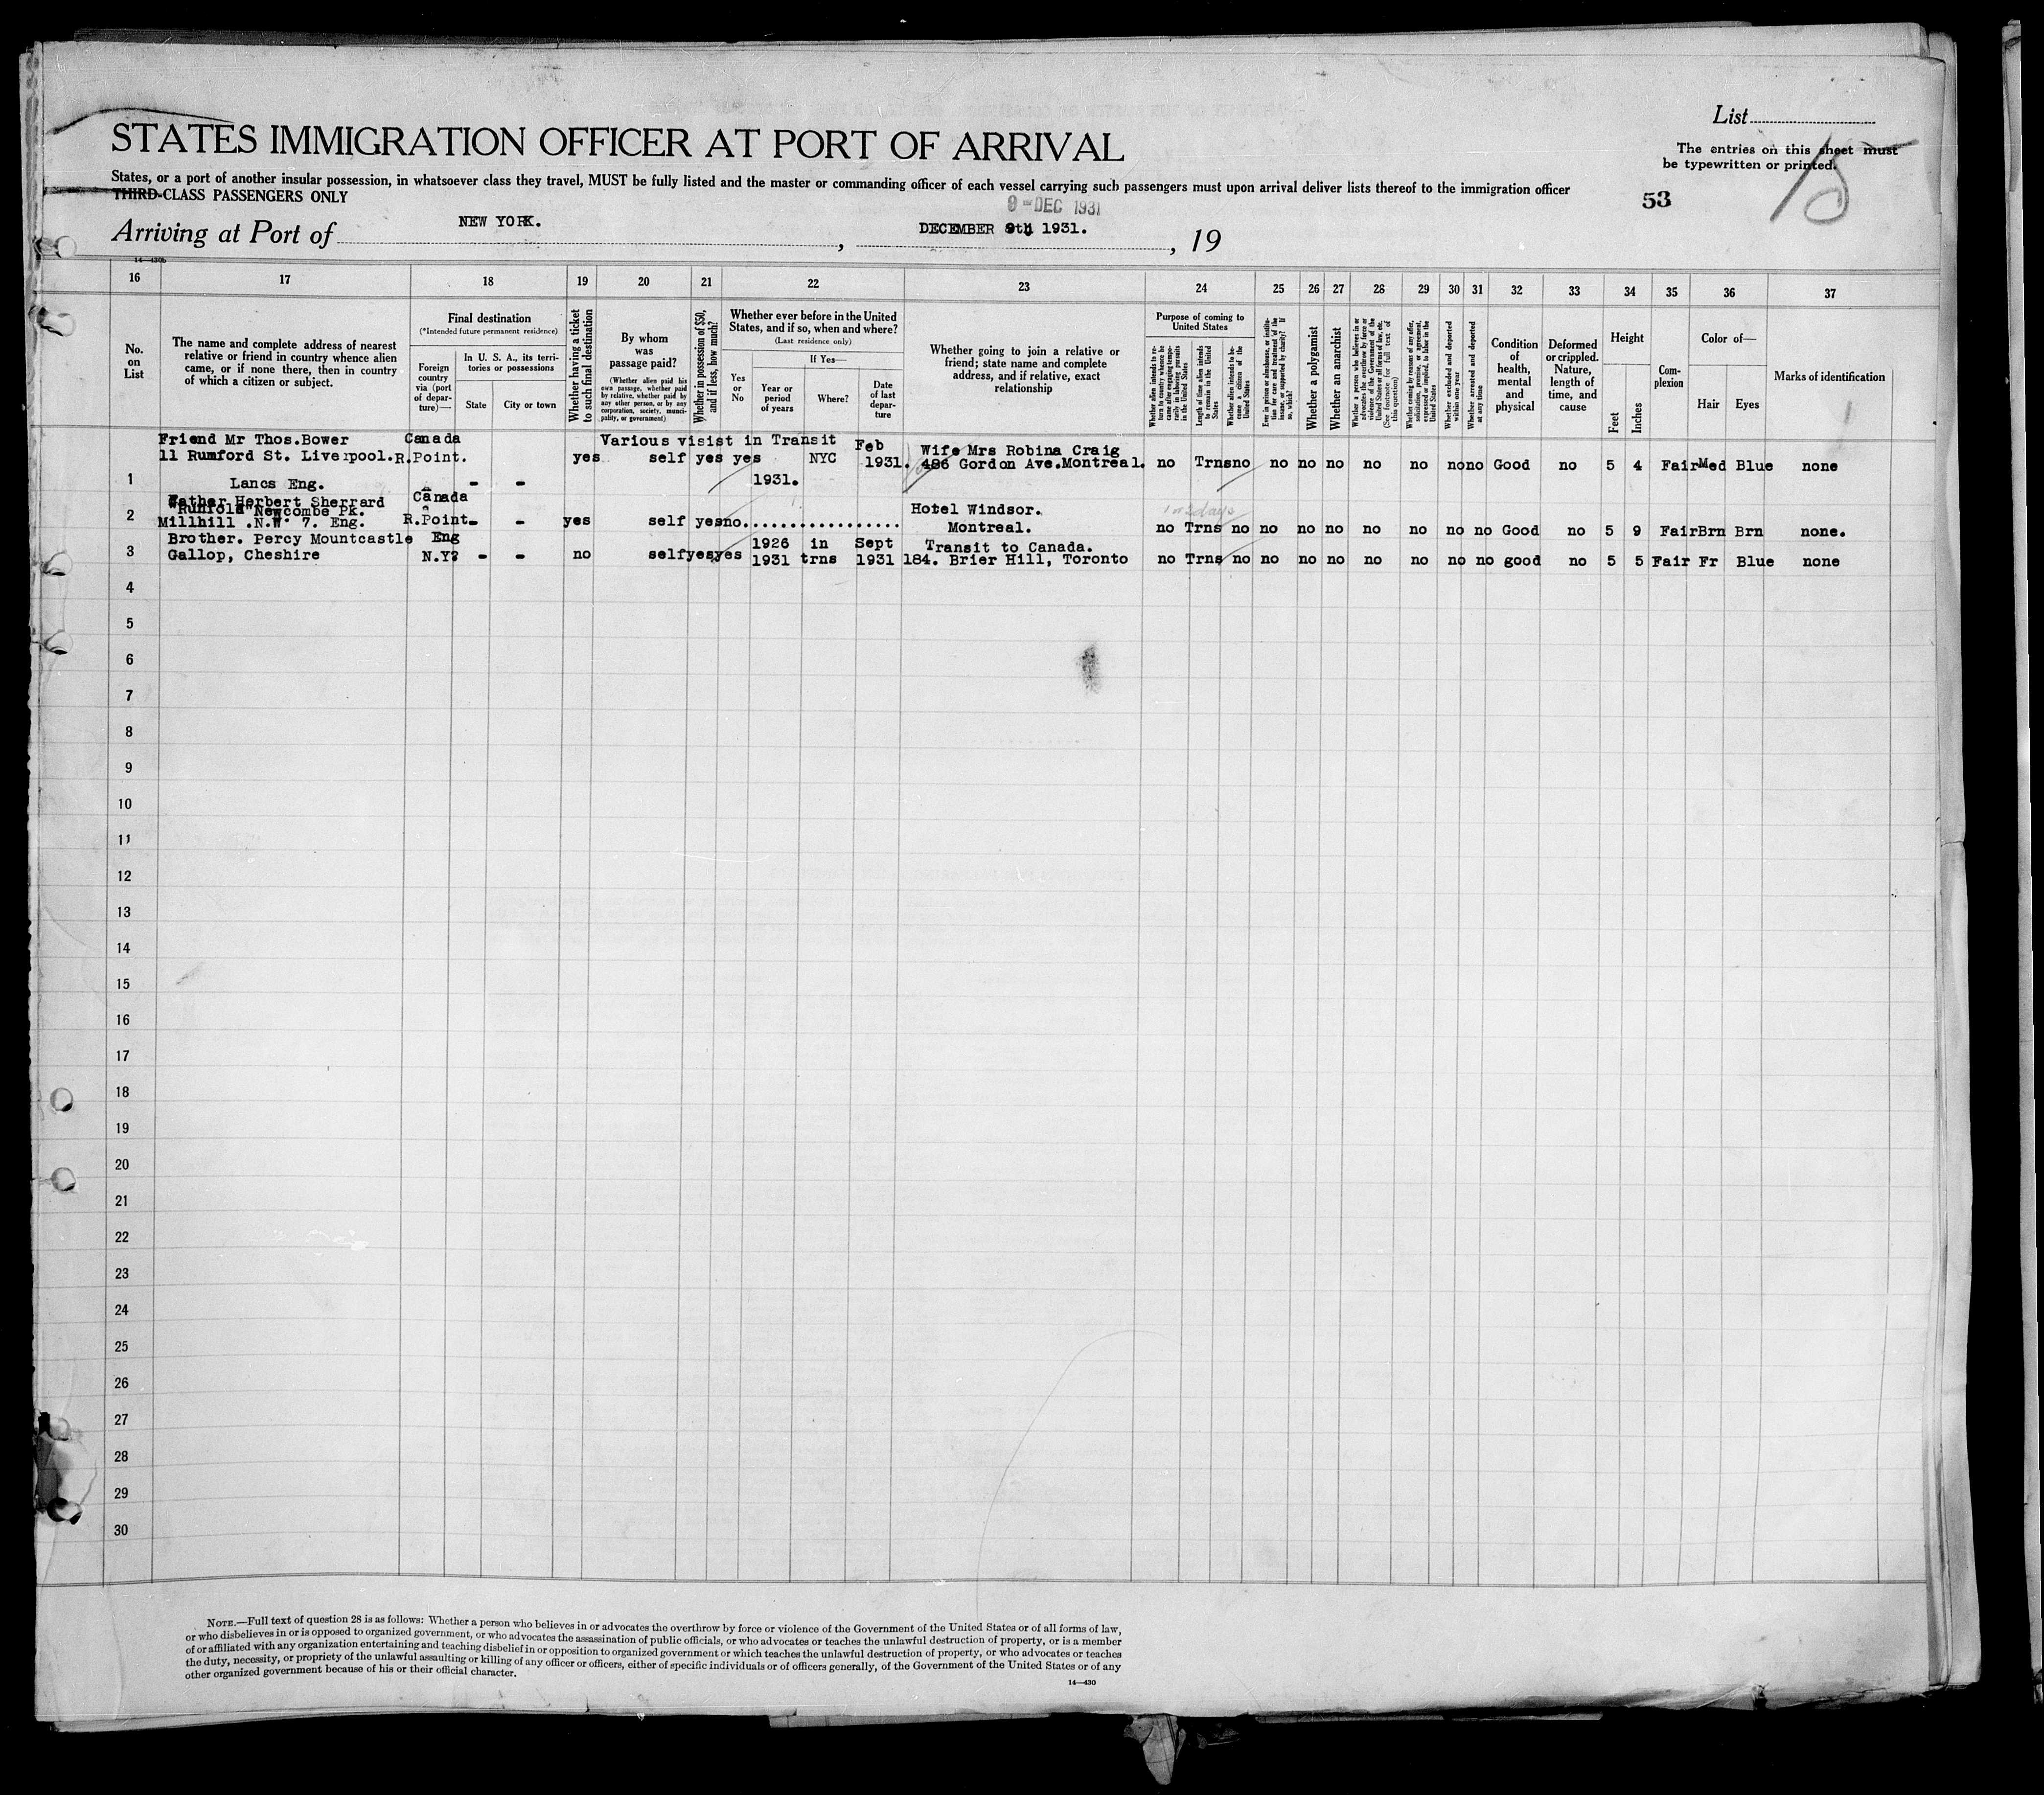 List
The entries on this sheet must
be typewritten or printed.
15
STATES IMMIGRATION OFFICER AT PORT OF ARRIVAL
States, or a port of another insular possession, in whatsoever class they travel, MUST be fully listed and the master or commanding officer of each vessel carrying such passengers must upon arrival deliver lists thereof to the immigration officer
THIRD-CLASS PASSENGERS ONLY
53
9-DEC 1931
Arriving at Port of NEW YORK. , DECEMBER 9th 1931. , 19
14—430b
16 17 18 19 20 21 22 23 24 25 26 27 28 29 30 31 32 33 34 35 36 37
No. on List
The name and complete address of nearest
relative or friend in country whence alien
came, or if none there, then in country
of which a citizen or subject.
Final destination
(*Intended future permanent residence)
Foreign country via (port of departure)—
In U. S. A., its territories or possessions
State
City or town
Whether having a ticket to such final destination
By whom was passage paid?
(Whether alien paid his own passage, whether paid by relative, whether paid by any other person, or by any corporation, society, municipality, or government)
Whether in possession of $50, and if less, how much?
Whether ever before in the United
States, and if so, when and where?
(Last residence only)
Yes or No
If Yes—
Year or period of years
Where?
Date of last departure
Whether going to join a relative or
friend; state name and complete
address, and if relative, exact
relationship
Purpose of coming to United States
Whether alien intends to return to country whence he came after engaging temporarily in laboring pursuits in the United States
Length of time alien intends to remain in the United States
Whether alien intends to become a citizen of the United States
Ever in prison or almshouse, or institution for care and treatment of the insane, or supported by charity? If so, which?
Whether a polygamist
Whether an anarchist
Whether a person who believes in or advocates the overthrow by force or violence of the Government of the United States or all forms of law, etc. (See footnote for full text of this question)
Whether coming by reasons of any offer, solicitation, promise, or agreement, expressed or implied, to labor in the United States
Whether excluded and deported within one year
Whether arrested and deported at any time
Condition of health, mental and physical
Deformed or crippled. Nature, length of time, and cause
Height
Feet
Inches
Complexion
Color of—
Hair
Eyes
Marks of identification
Friend Mr Thos.Bower Canada Various visist in Transit Feb Wife Mrs Robina Craig
11 Rumford St. Liverpool. R.Point. yes self yes yes NYC 1931. 486 Gordon Ave.Montreal. no Trns no no no no no no no no Good no 5 4 Fair Med Blue none
1 Lancs Eng. - - 1931.
Father Herbert Sherrard Canada
"Runfold" Newcombe Pk. Hotel Windsor. 1 or 2 days
2 Millhill .N.W. 7. Eng. R.Point - - yes self yes no................. Montreal. no Trns no no no no no no no no Good no 5 9 Fair Brn Brn none.
Brother. Percy Mountcastle Eng 1926 in Sept Transit to Canada.
3 Gallop, Cheshire N.Y? - - no self yes yes 1931 trns 1931 184. Brier Hill, Toronto no Trns no no no no no no no no good no 5 5 Fair Fr Blue none
4
5
6
7
8
9
10
11
12
13
14
15
16
17
18
19
20
21
22
23
24
25
26
27
28
29
30
NOTE.—Full text of question 28 is as follows: Whether a person who believes in or advocates the overthrow by force or violence of the Government of the United States or of all forms of law,
or who disbelieves in or is opposed to organized government, or who advocates the assassination of public officials, or who advocates or teaches the unlawful destruction of property, or is a member
of or affiliated with any organization entertaining and teaching disbelief in or opposition to organized government or which teaches the unlawful destruction of property, or who advocates or teaches
the duty, necessity, or propriety of the unlawful assaulting or killing of any officer or officers, either of specific individuals or of officers generally, of the Government of the United States or of any
other organized government because of his or their official character.
14—430